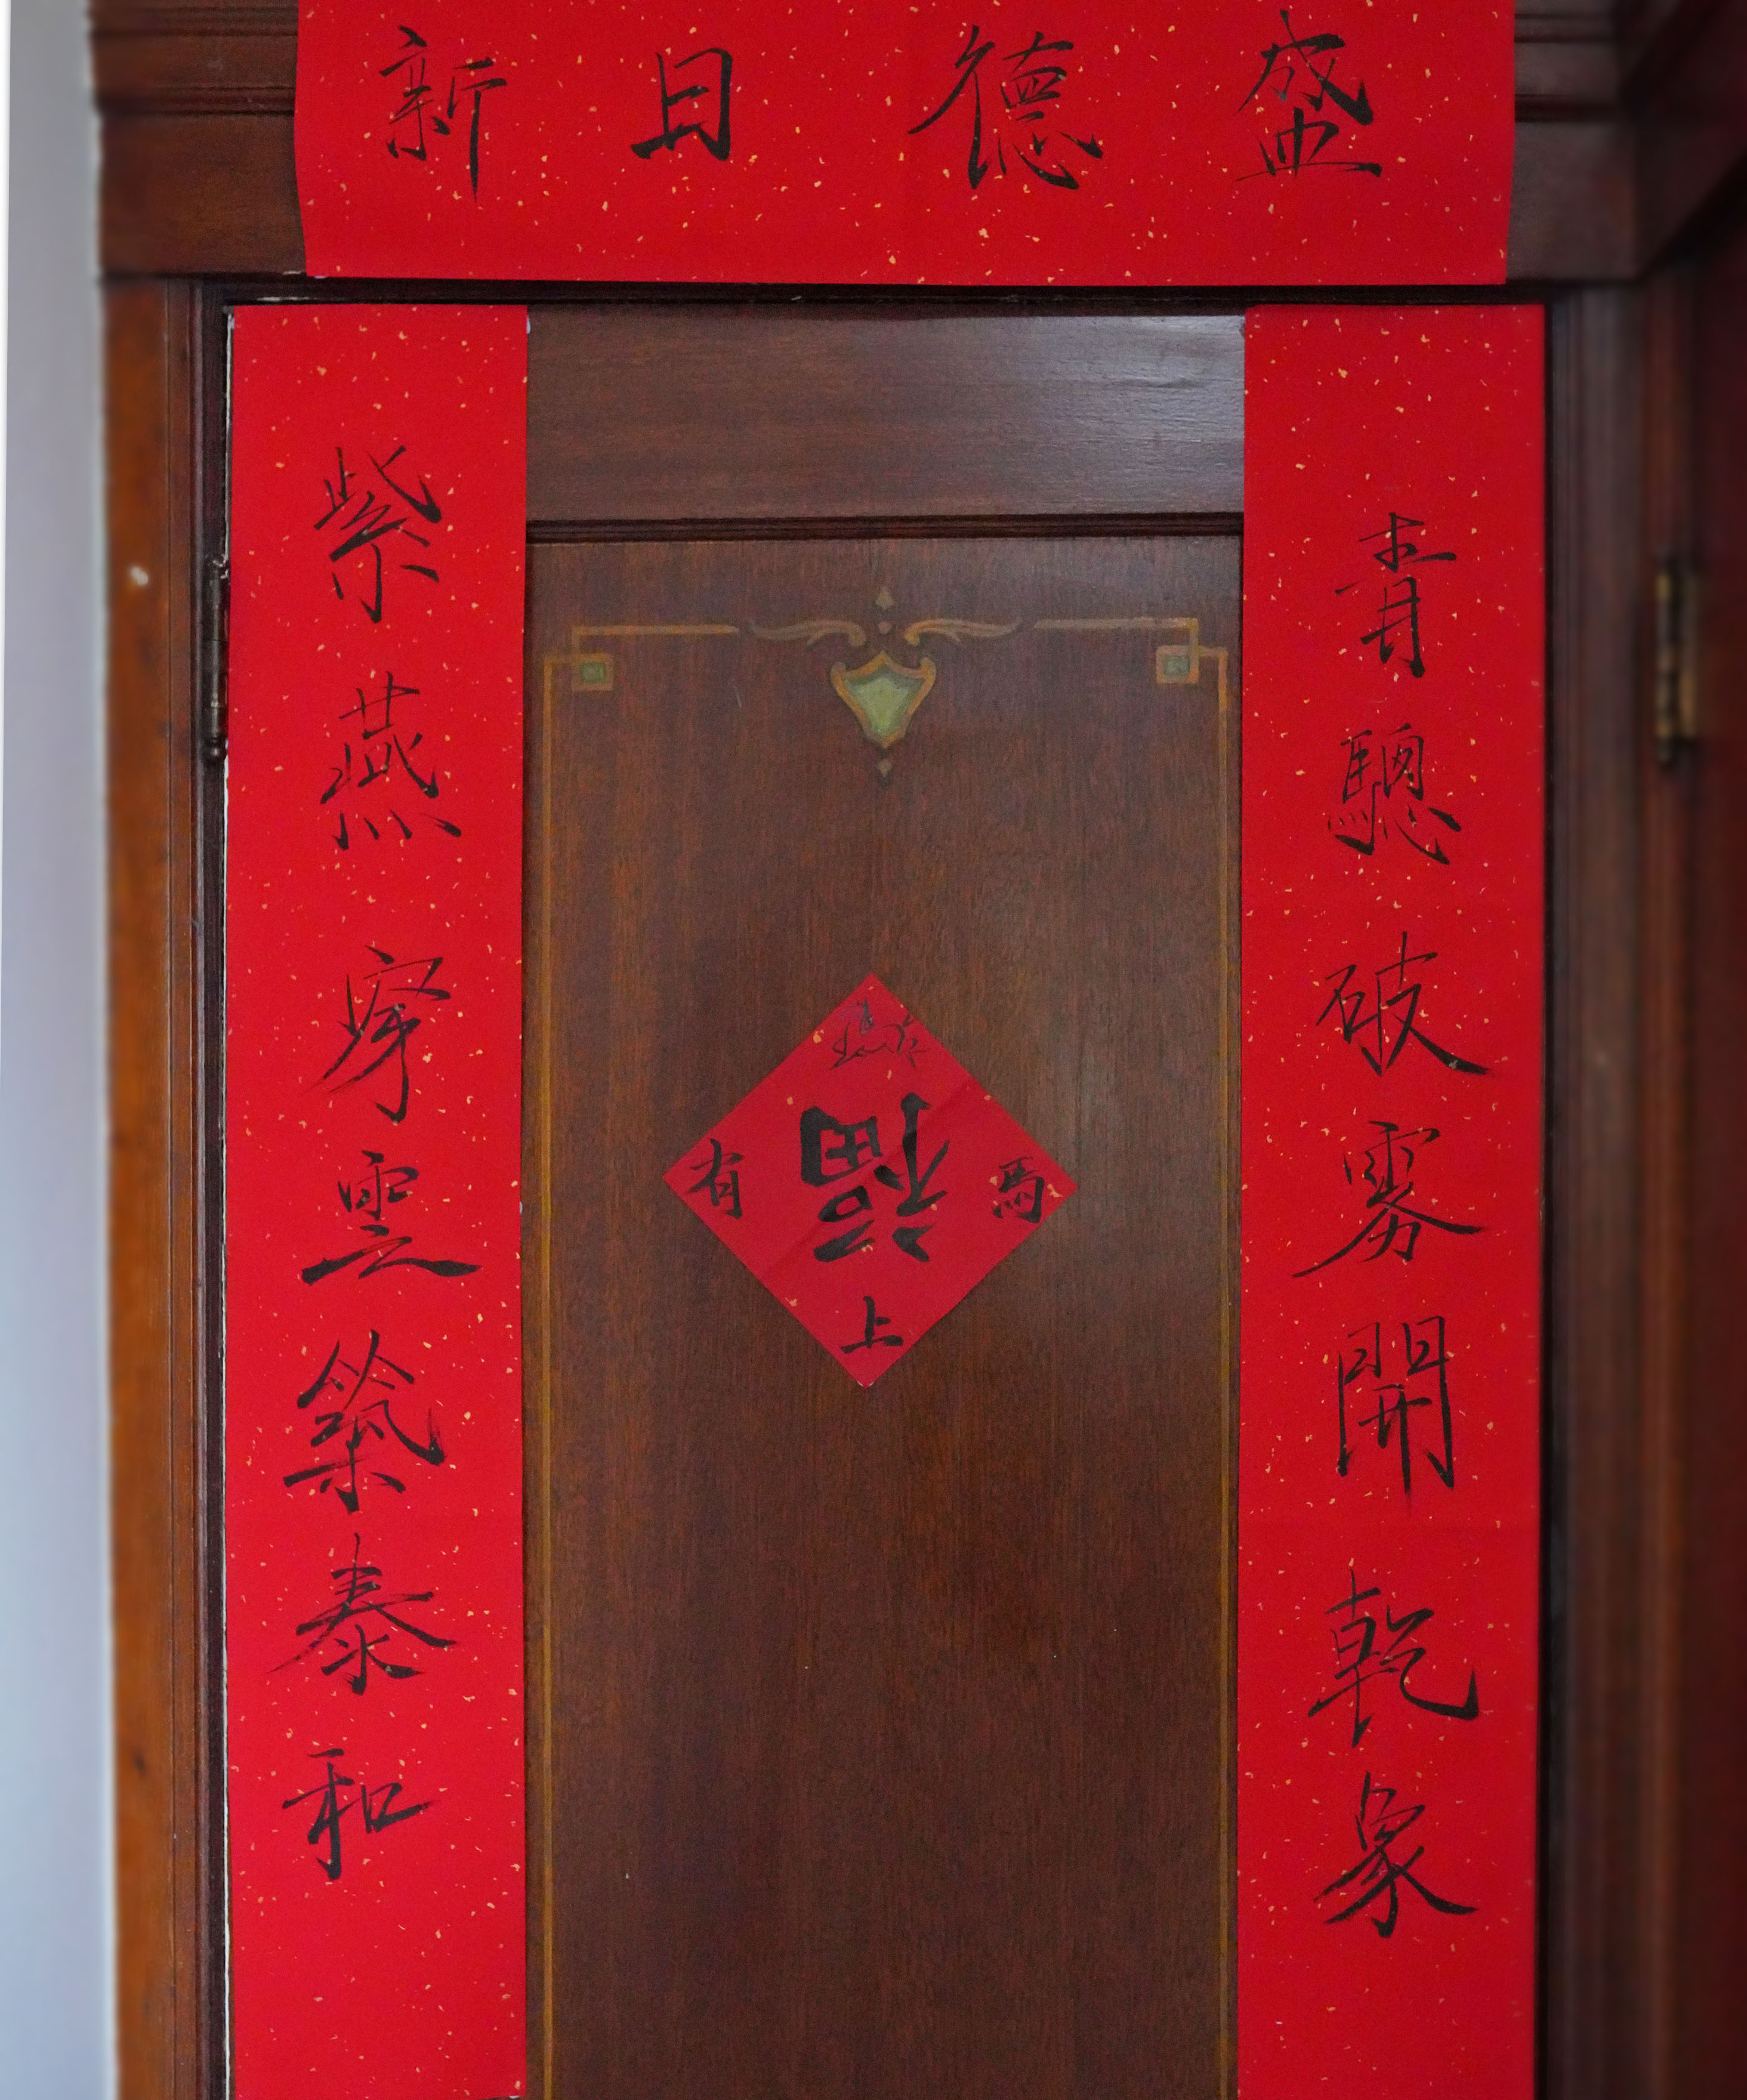 盛德日新
青驄破雾開乾象
紫燕穿雲築泰和
馬上有福